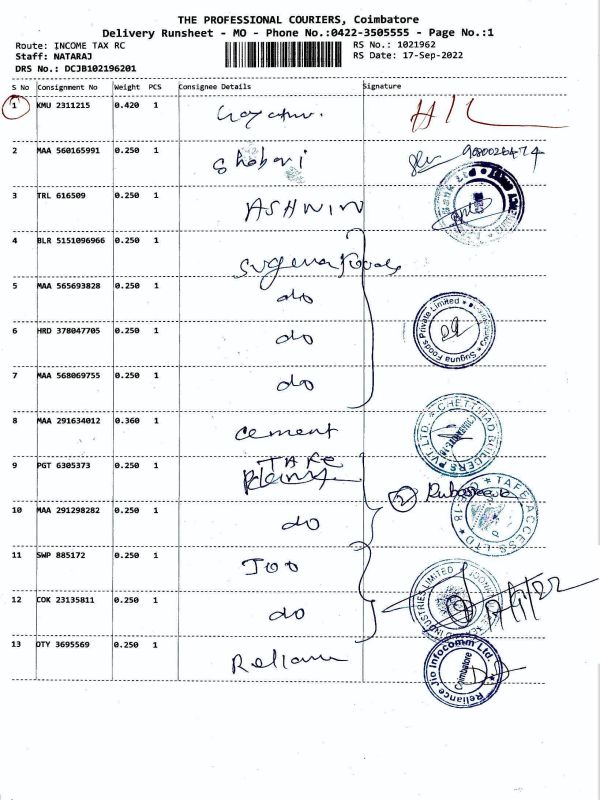 THE PROFESSIONAL COURIERS, Coimbatore
Delivery Runsheet - MO - Phone No.:0422-3505555 - Page No.:1
Route: INCOME TAX RC RS No.: 1021962
Staff: NATARAJ RS Date: 17-Sep-2022
DRS No.: DCJB102196201
S No Consignment No Weight PCS Consignee Details Signature
1 KMU 2311215 0.420 1 H/L
2 MAA 560165991 0.250 1 Shobani
3 TRL 616509 0.250 1 ASHWIN
4 BLR 5151096966 0.250 1 Suguna Foods
5 MAA 565693828 0.250 1 do
Suguna Foods Private Limited * Coimbatore *
6 HRD 378047705 0.250 1 do
7 MAA 568069755 0.250 1 do
8 MAA 291634012 0.360 1 cement
CHETTINAD BUILDERS PVT LTD.
9 PGT 6305373 0.250 1 TAFE
10 MAA 291298282 0.250 1 do
TAFE ACCESS LTD
11 SWP 885172 0.250 1
12 COK 23135811 0.250 1 do
INDUSTRIES LIMITED
13 OTY 3695569 0.250 1 Reliance
Reliance Jio Infocomm Ltd. Coimbatore